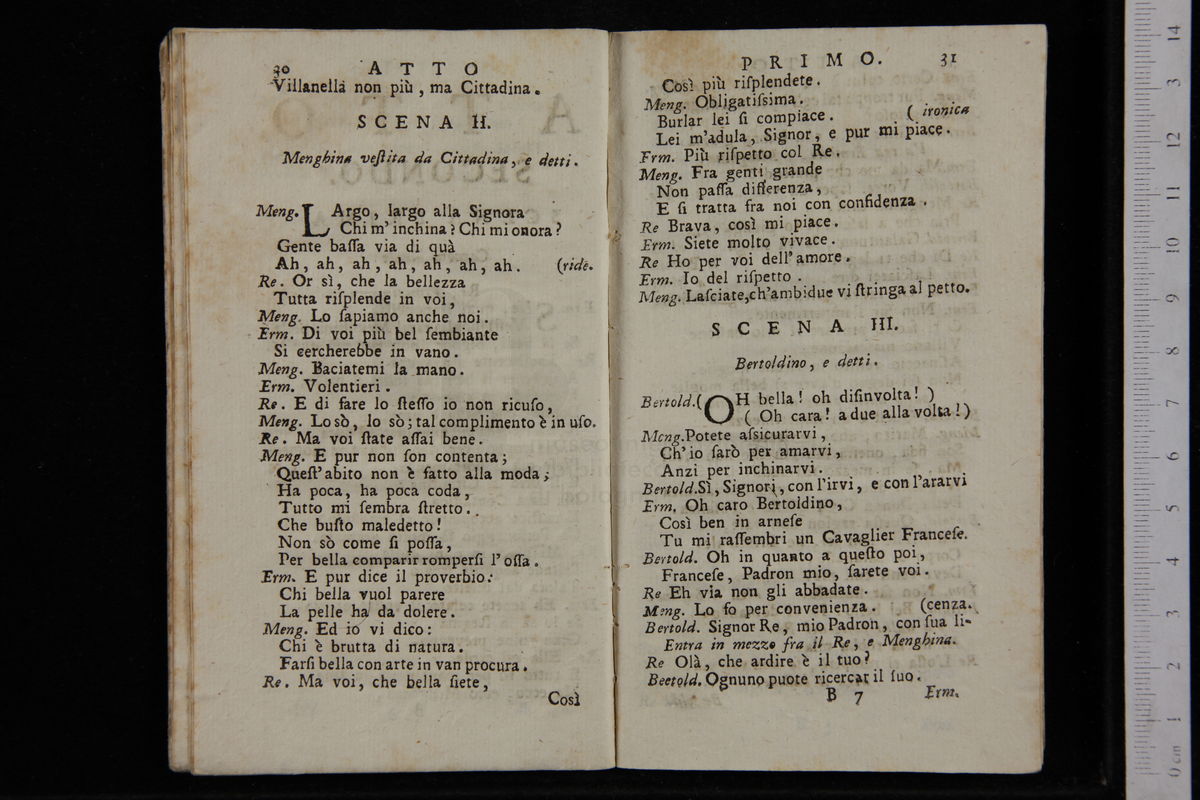 30 ATTO
Villanella non più, ma Cittadina.
SCENA II.
Menghina veſtita da Cittadina, e detti.
Meng. LArgo, largo alla Signora
Chi m'inchina? Chi mi onora?
Gente baſſa via di quà
Ah, ah, ah, ah, ah, ah, ah. (ride.
Re. Or sì, che la bellezza
Tutta riſplende in voi,
Meng. Lo ſapiamo anche noi.
Erm. Di voi più bel ſembiante
Si cercherebbe in vano.
Meng. Baciatemi la mano.
Erm. Volentieri.
Re. E di fare lo ſteſſo io non ricuſo,
Meng. Lo sò, lo sò; tal complimento è in uſo.
Re. Ma voi ſtate aſſai bene.
Meng. E pur non ſon contenta;
Queſt'abito non è fatto alla moda;
Ha poca, ha poca coda,
Tutto mi ſembra ſtretto.
Che buſto maledetto!
Non sò come ſi poſſa,
Per bella comparir romperſi l'oſſa.
Erm. E pur dice il proverbio:
Chi bella vuol parere
La pelle ha da dolere.
Meng. Ed io vi dico:
Chi è brutta di natura.
Farſi bella con arte in van procura.
Re. Ma voi, che bella ſiete,
Così
PRIMO. 31
Così più riſplendete.
Meng. Obligatiſsima.
Burlar lei ſi compiace. (ironica
Lei m'adula, Signor, e pur mi piace.
Erm. Più riſpetto col Re.
Meng. Fra genti grande
Non paſſa differenza,
E ſi tratta fra noi con confidenza.
Re Brava, così mi piace.
Erm. Siete molto vivace.
Re Ho per voi dell'amore.
Erm. Io del riſpetto.
Meng. Laſciate, ch'ambidue vi ſtringa al petto.
SCENA III.
Bertoldino, e detti.
Bertold. (OH bella! oh diſinvolta!)
(Oh cara! a due alla volta!)
Meng. Potete aſsicurarvi,
Ch'io ſarò per amarvi,
Anzi per inchinarvi.
Bertold. Sì, Signori, con l'irvi, e con l'ararvi
Erm. Oh caro Bertoldino,
Così ben in arneſe
Tu mi raſſembri un Cavaglier Franceſe.
Bertold. Oh in quanto a queſto poi,
Franceſe, Padron mio, ſarete voi.
Re Eh via non gli abbadate.
Meng. Lo fo per convenienza. (cenza.
Bertold. Signor Re, mio Padron, con ſua li-
Entra in mezzo fra il Re, e Menghina.
Re Olà, che ardire è il tuo?
Beetold. Ognuno puote ricercar il ſuo.
B 7 Erm.
0 cm 1 2 3 4 5 6 7 8 9 10 11 12 13 14